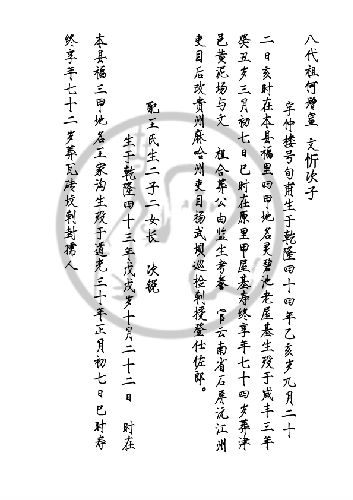 八代祖何增鳌 文忻次子
字仲楼号旬甫生于乾隆四十四年乙亥岁九月二十
二日亥时在本县福里四甲地名灵碧池老屋基生殁于咸丰三年
癸丑岁三月初七日巳时在原里甲屋基寿终享年七十四岁葬津
邑黄泥场与文 祖合葬公由监生考叅 官云南省石屏沅江州
吏目后改贵州麻哈州吏目杨武坝巡检剌授登仕佐郎。
配王氏生二子二女长 次锐
生于乾隆四十三年戊戌岁十二月二十二日 时在
本县福三甲地名王家沟生殁于道光三十年正月初七日巳时寿
终享年七十二岁葬瓦砖坟剌封孺人